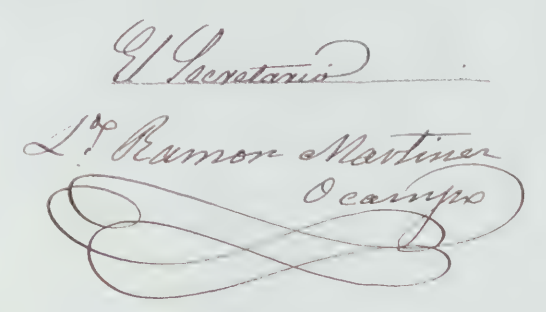 El Secretario
L.º Ramon Martinez
Ocampo